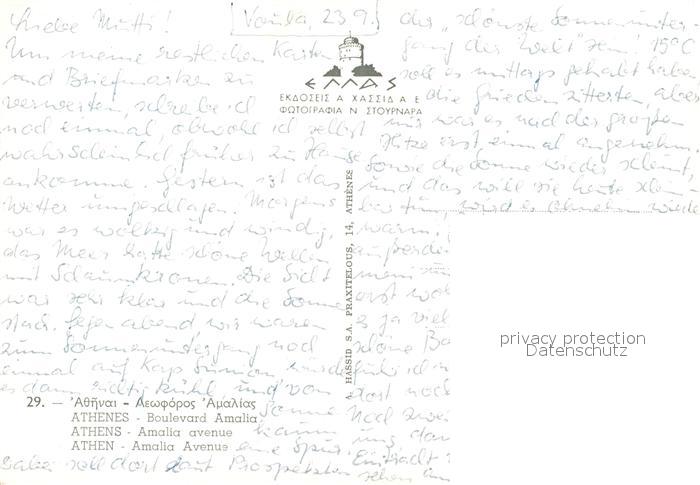 Liebe Mutti!
Voula, 23.9.
Um meine restlichen Karten
und Briefmarken zu
verwerten schreibe ich
noch einmal, obwohl ich selbst
wahrscheinlich früher zu Hause
ankomme. Gestern ist das
Wetter umgeschlagen. Morgens
war es wolkig und windig,
das Meer hatte schöne Wellen
mit Schaumkronen. Die Sicht
war sehr klar und die Sonne
stach. Gegen abend wir waren
zum Sonnenuntergang noch
einmal auf Kap Sunion wurde
es dann richtig kühl, und von
Sonne
kaum
eine Spur.
Dabei soll dort laut Prospekten
der „schönste Sonnenunter-
gang der Welt" sein! 15°C
soll es mittags gehabt haben
die Griechen zitterten, aber
mir war es nach der großen
Hitze erst einmal angenehm.
Sowie die Sonne wieder scheint,
und das will sie heute
wird es ohnehin wieder
warm.
ja viel
schöne
dort noch
Noch zwei
ΕΛΛΑΣ
ΕΚΔΟΣΕΙΣ Α ΧΑΣΣΙΔ Α Ε
ΦΩΤΟΓΡΑΦΙΑ Ν ΣΤΟΥΡΝΑΡΑ
A. HASSID S.A. PRAXITELOUS, 14, ATHÈNES
29. — Ἀθῆναι - Λεωφόρος Ἀμαλίας
ATHENES - Boulevard Amalia
ATHENS - Amalia avenue
ATHEN - Amalia Avenue
privacy protection
Datenschutz